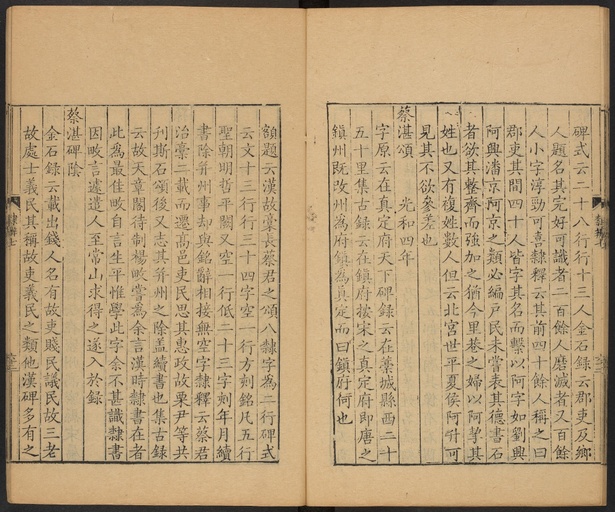 碑式云二十八行行十三人金石録云郡吏及鄉
人題名其完好可識者二百餘人磨滅者又百餘
人小字淳勁可喜隸釋云其前四十餘人稱之曰
郡吏其間四十人皆字其名而繫以阿字如劉興
阿興潘京阿京之類必編戸民未嘗表其德書石
者欲其整齊而強加之猶今里巷之婦以阿挈其
姓也又有複姓數人但云北宮世平夏侯阿升可
見其不欲參差也
蔡湛頌 光和四年
字原云在真定府天下碑録云在藁城縣西二十
五十里集古録云在鎮府按宋之真定府即唐之
鎮州既改州為府鎮為真定而曰鎮府何也
額題云漢故藁長蔡君之頌八隸字為二行碑式
云文十三行行三十四字空一行方刻銘凡五行
聖朝明哲平闕又空一行低二十三字刻年月續
書除并州事却與銘辭相接無空字隸釋云蔡君
治藁二載而遷高邑吏民思其惠政故栗尹等共
刋斯石頌後又志其并州之除盖續書也集古録
云故天章閣待制楊畋嘗為余言漢時隸書在者
此為最佳畋自言生平惟學此字余不甚識隸書
因畋言遽遣人至常山求得之遂入於録
蔡湛碑陰
金石録云載出錢人名有故吏賤民議民故三老
故處士義民其稱故吏義民之類他漢碑多有之
隸辨七